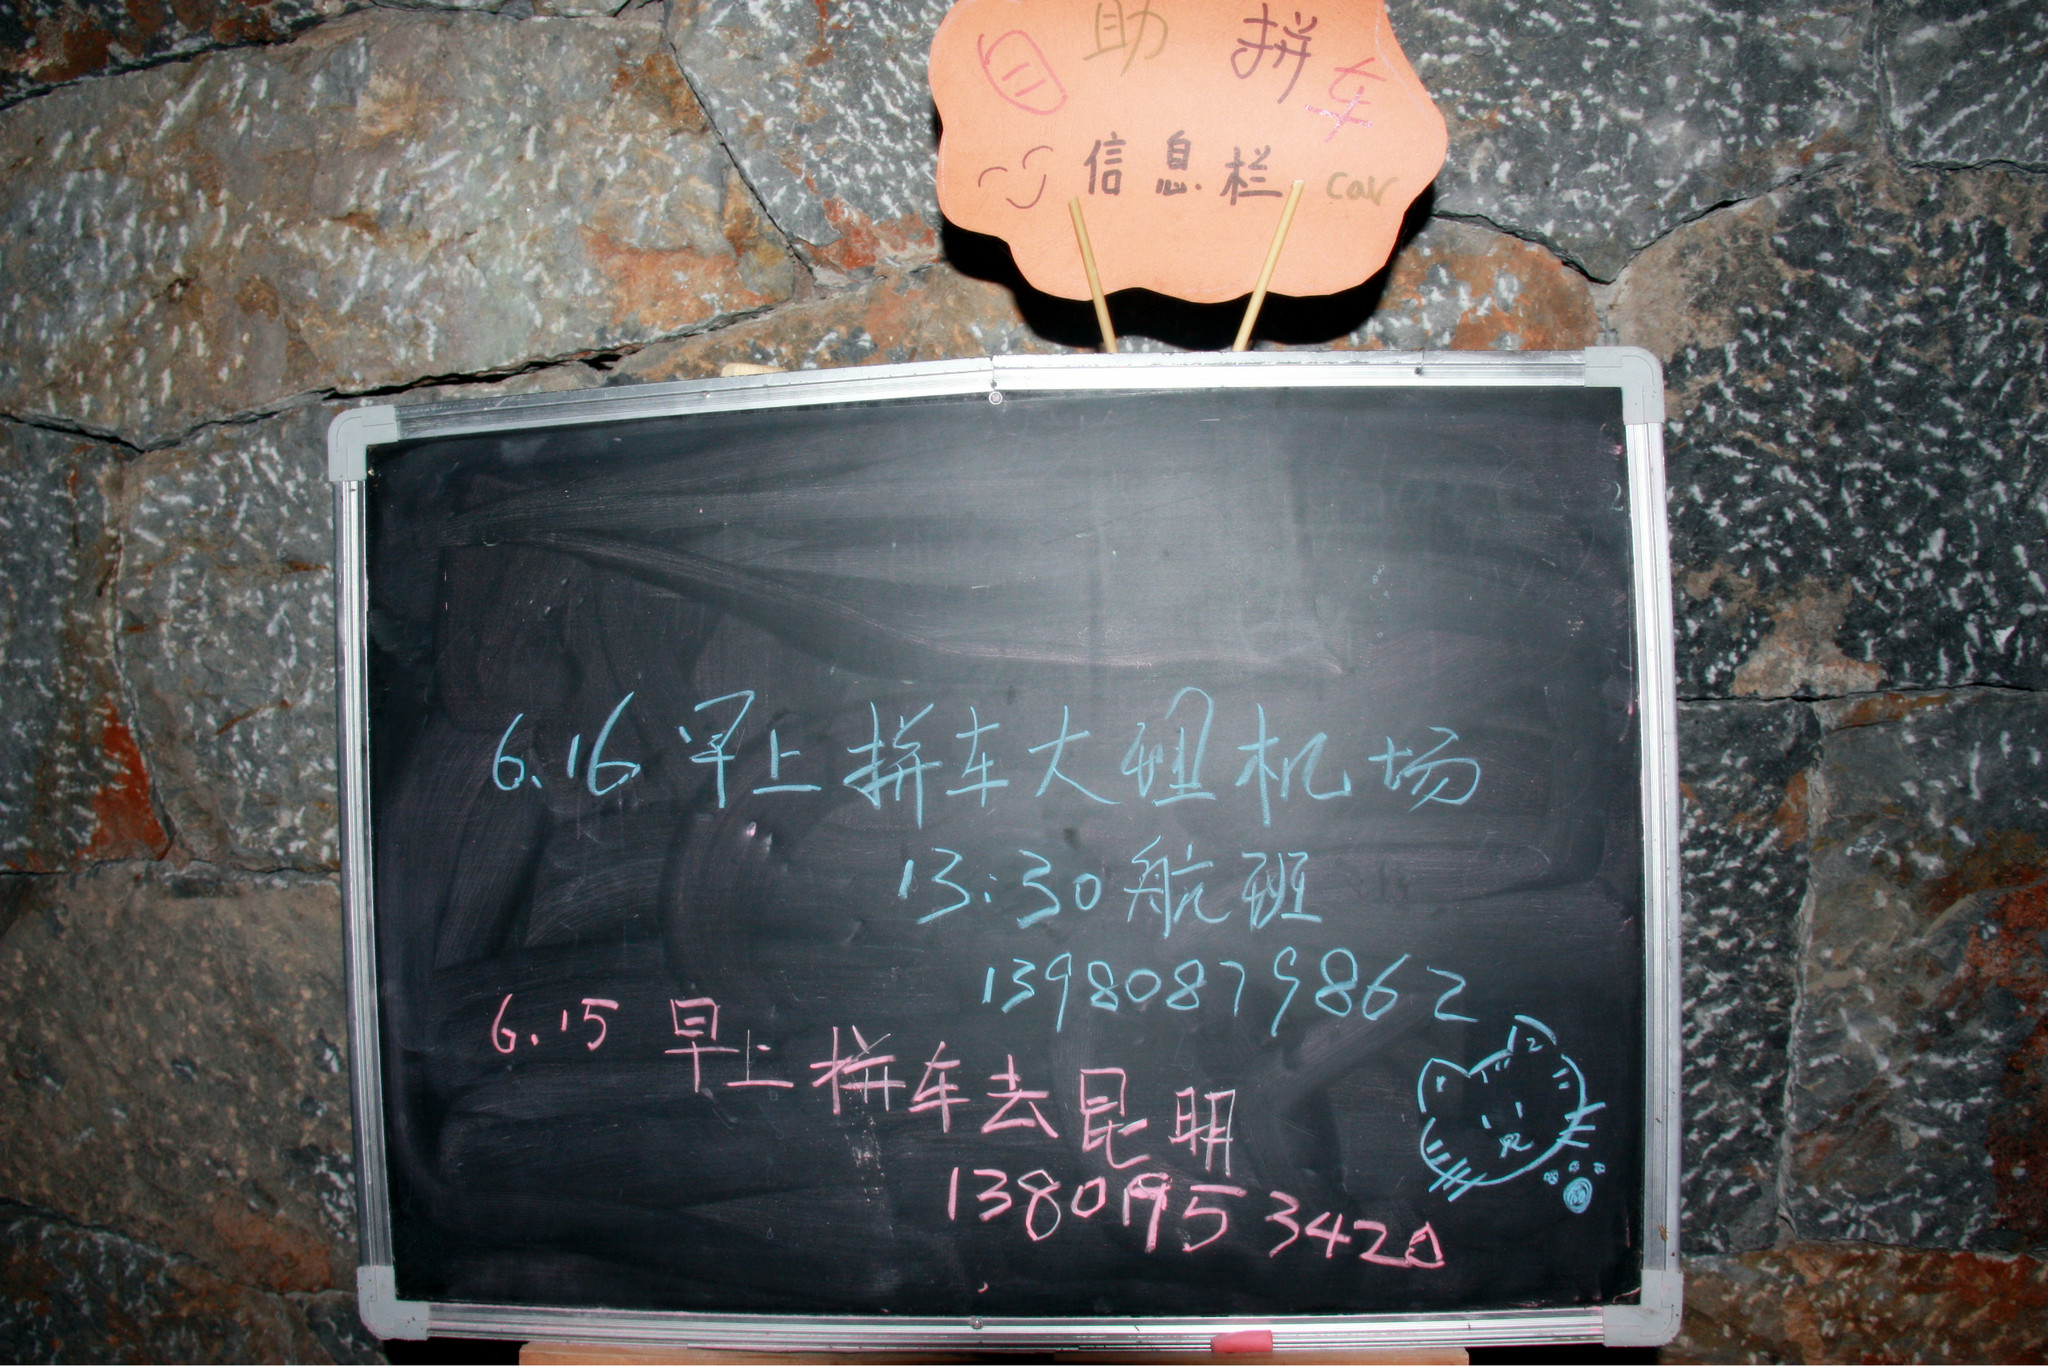 自助拼车
信息栏 car
6.16 早上拼车大理机场
13:30航班
13980879862
6.15 早上拼车去昆明
13801953420